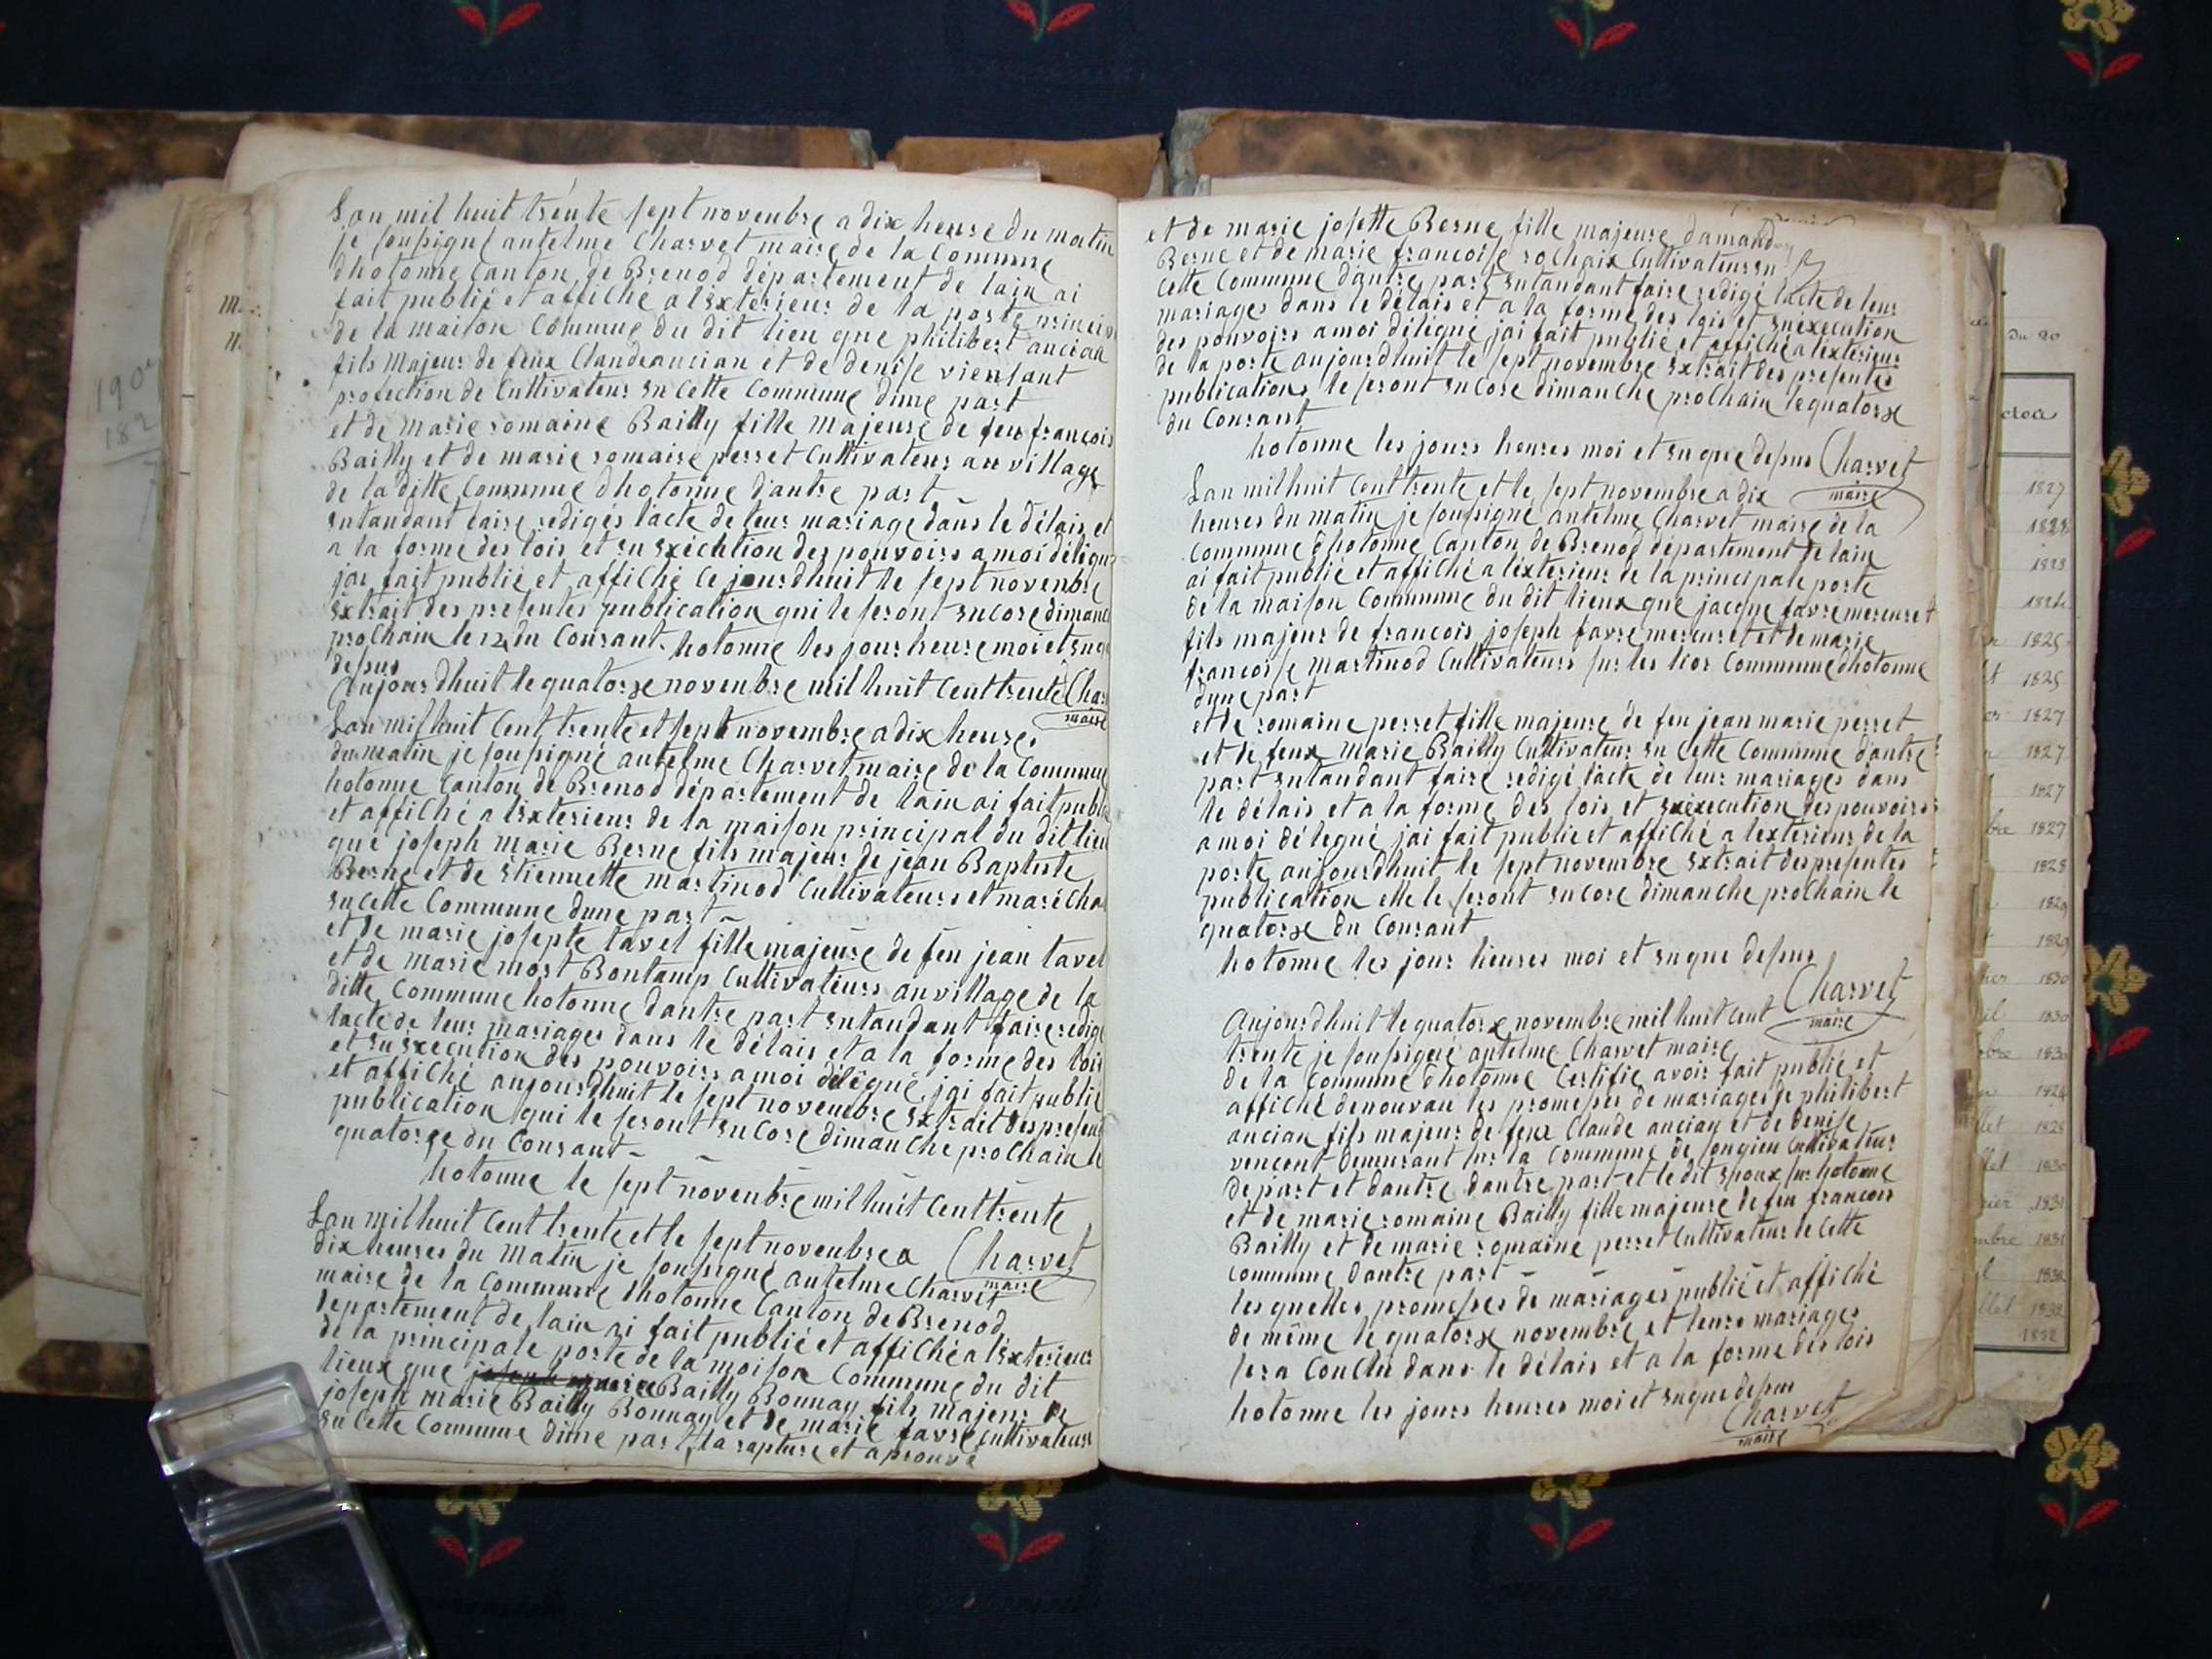 Lan mil huit trente sept novenbre a dix heure du matin
je soupigné antelme Charvet maire de la Commune
dhotonne Canton de Brenod département de lain ai
fait publié et affiché a lextérieur de la porte
de la maison Commune du dit lieu que philibert ancian
fils Majeur de feux Claude ancian et de denise viensant
profection de Cultivateur en Cette Commune dune part
et de Marie romaine Bailly fille majeure de feu francois
Bailly et de marie romaire perret Cultivateur au village
de la ditte Commune dhotonne dautre part
entandant faire redigés lacte de leur mariage dans le délais et
a la forme des lois et en exécution des pouvoirs a moi délégu
jai fait publié et affiché ce jourdhuit le sept novenbre
extrait des presentes publication qui le seront encore dimanc
prochain le 12 du Courant. hotonne les jour heure moi et enq
depus
Aujourdhuit le quatorxe novenbre mil huit Cent trente Char
maire
Lan mil huit Cent trente et sept novembre a dix heures
du matin je soupigné antelme Charvet maire de la Commune
hotonne Canton de Brenod département de lain ai fait publi
et affiché a lexterieur de la maison principal du dit lieu
que joseph marie Berne fils majeur de jean Baptiste
Berne et de étiennette martinod Cultivateurs et maréchal
en Cette Commune dune part
et de marie josepte tavel fille majeure de feu jean tavel
et de Marie mort Bontamp Cultivateurs au village de la
ditte Commune hotonne dautre part entandant faire redigé
lacte de leur mariages dans le délais et a la forme des lois
et en execution des pouvoirs a moi délégué, jai fait publié
et affiché aujourdhuit le sept novembre extrait des presen
publication qui le seront encore dimanche prochain le
quatorze du Courant
hotonne le sept novenbre mil huit Cent trente
Charvet
maire
Lan mil huit Cent trente et le sept novenbre a
dix heures du matin je soupigné antelme Charvet
maire de la Commune dhotonne Canton de Brenod
departement de lain ai fait publié et affiché a lexterieur
de la principale porte de la moison Commune du dit
lieux que joseph marie Bailly Bonnay fils majeur de
joseph marie Bailly Bonnay et de marie favre Cultivateurs
en Cette Commune dune part, la rapture et aprouvé
et de marie josette Berne fille majeure damand
Berne et de marie francoise rochaix Cultivateurs en
Cette Commune dautre part entandant faire redigé lacte de leur
mariages dans le délais et a la forme des lois et en execution
des pouvoirs a moi délégué jai fait publié et affiché a lexterieur
de la porte aujourdhuit le sept novembre extrait des presentes
publications le seront encore dimanche prochain le quatorxe
du Courant
hotonne les jours heures moi et enque depus Charvet
maire
Lan mil huit Cent trente et le sept novembre a dix
heures du matin je soupigné antelme Charvet maire de la
Commune dhotonne Canton de Brenod département de lain
ai fait publié et affiché a lexterieur de la principale porte
de la maison Commune du dit lieux que jacque favre mercuret
fils majeur de francois joseph favre mercuret et de marie
francoise martinod Cultivateurs sur les lior Commune dhotonne
dune part
et de romaine perret fille majeure de feu jean marie perret
et de feux marie Bailly Cultivateur en Cette Commune dautre
part entandant faire redigé lacte de leur mariages dans
le délais et a la forme des lois et exéxecution des pouvoirs
a moi délegué jai fait publié et affiché a lexterieur de la
porte aujourdhuit le sept novembre extrait des presentes
publication elle le seront encore dimanche prochain le
quatorxe du Courant
hotonne les jour heures moi et enque depus
Charvet
maire
Aujourdhuit le quatorxe novembre mil huit Cent
trente je soupigné antelme Charvet maire
de la Commune dhotonne Certifie avoir fait publié et
affiché denouvau les promesses de mariages de philibert
ancian fils majeur de feux Claude ancian et de denise
vencent demeurant sur la Commune de songieu Cultivateur
depart et dautre dautre part et le dit epoux sur hotonne
et de marie romaine Bailly fille majeure de feu francois
Bailly et de marie romaine perret Cultivateur de Cette
Commune dautre part
les quelles promesses de mariages publié et affiché
de même le quatorxe novembre et leurs mariages
sera Conclu dans le délais et a la forme des lois
hotonne les jours heures moi et enque depus
Charvet
maire
190
182
Du 20
1827
1828
1825
1825
1827
1827
1827
1827
1828
1829
1829
1830
1830
1830
1828
1830
1831
1831
1832
1832